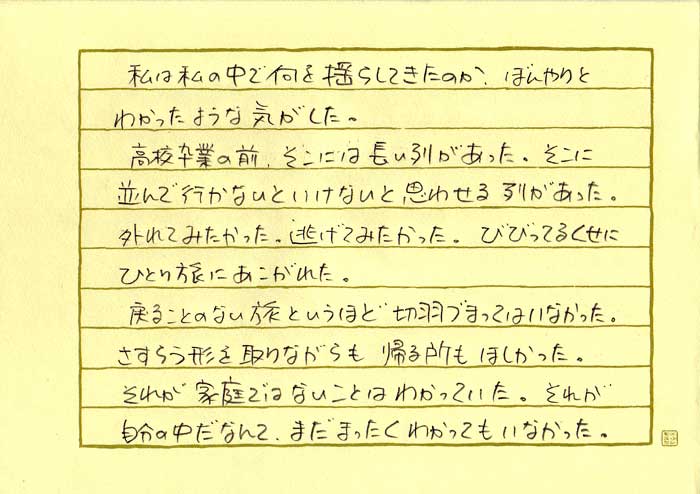 私は私の中で何を揺らしてきたのか、ぼんやりと
わかったような気がした。
高校卒業の前、そこには長い列があった。そこに
並んで行かないといけないと思わせる列があった。
外れてみたかった。逃げてみたかった。びびってるくせに
ひとり旅にあこがれた。
戻ることのない旅というほど切羽づまってはいなかった。
さすらう形を取りながらも帰る所もほしかった。
それが家庭ではないことはわかっていた。それが
自分の中だなんて、まだまったくわかってもいなかった。